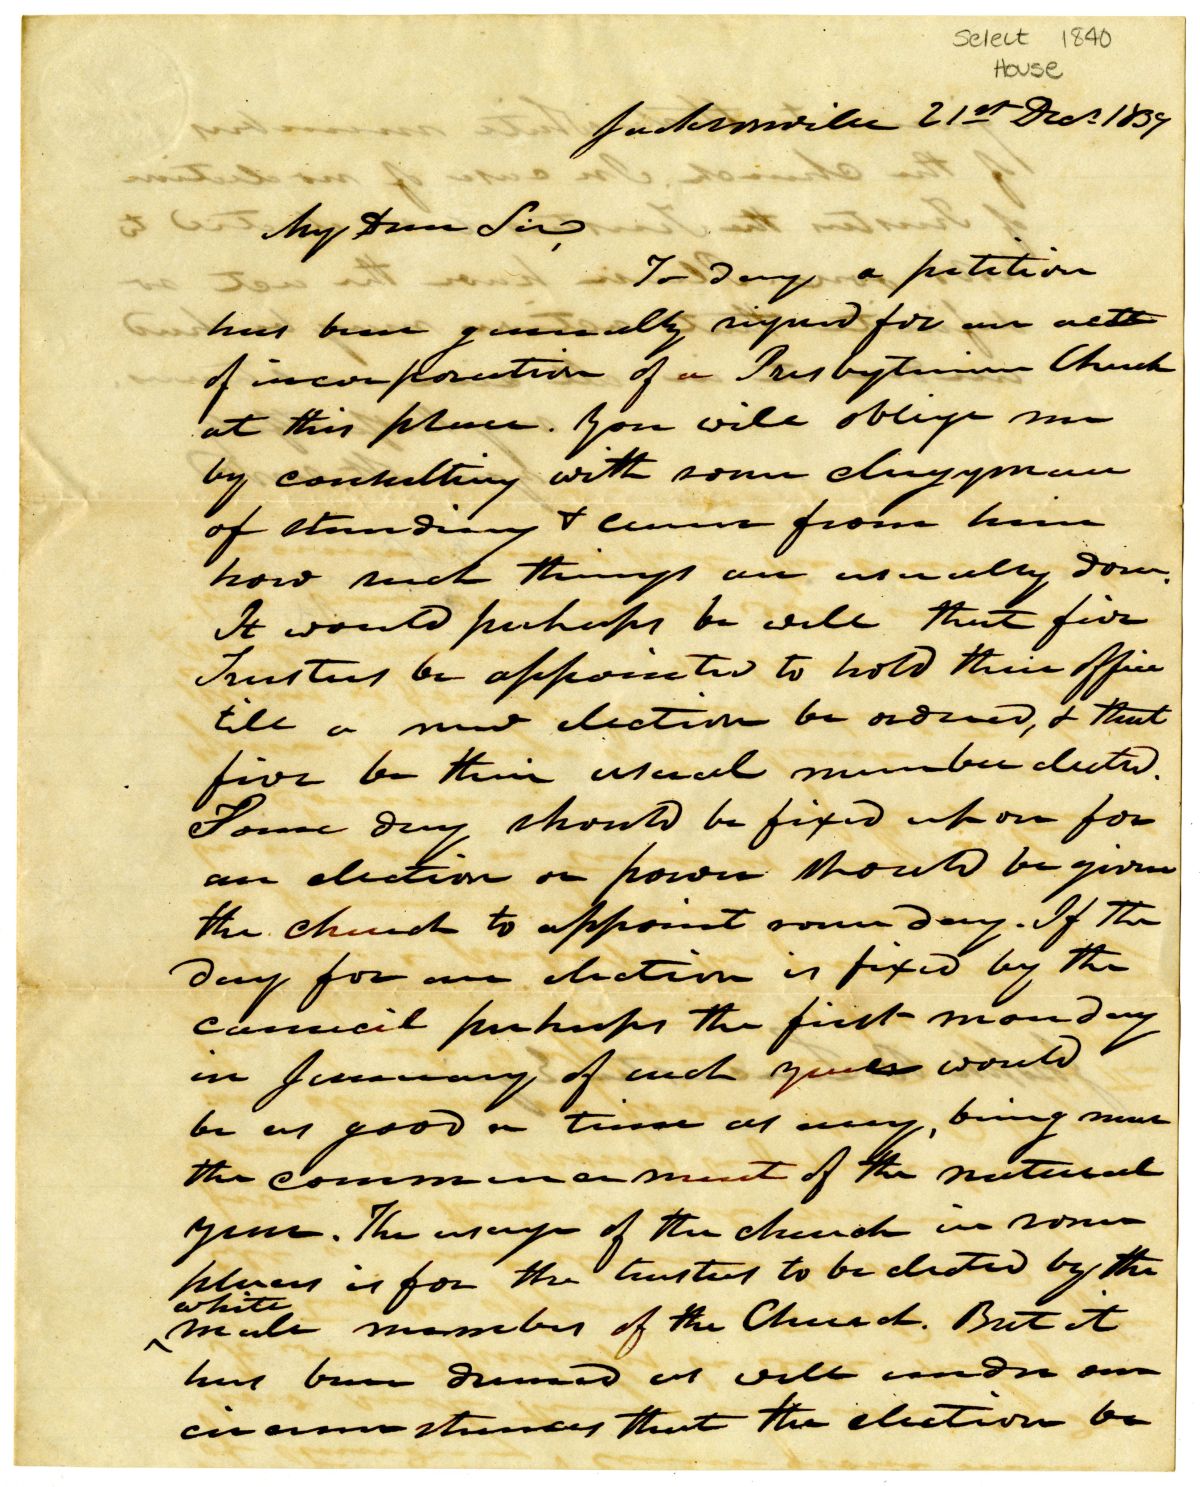 Select 1840
House
Jacksonville 21st Decr. 1839
My Dear Sir,
To day a petition
has been generally signed for an act
of incorporation of a Presbyterian Church
at this place. You will oblige me
by consulting with some clergyman
of standing & learn from him
how such things are usually done.
It would perhaps be well that five
Trustees be appointed to hold their office
till a new election be ordered, & that
five be their usual number elected.
Some day should be fixed upon for
an election or power should be given
the church to appoint some day. If the
day for an election is fixed by the
council perhaps the first monday
in January of each year would
be as good a time as any, being near
the commencement of the natural
year. The usage of the church in some
places is for the trustees to be elected by the
white
male members of the Church. But it
has been deemed as well under our
circumstances that the election be